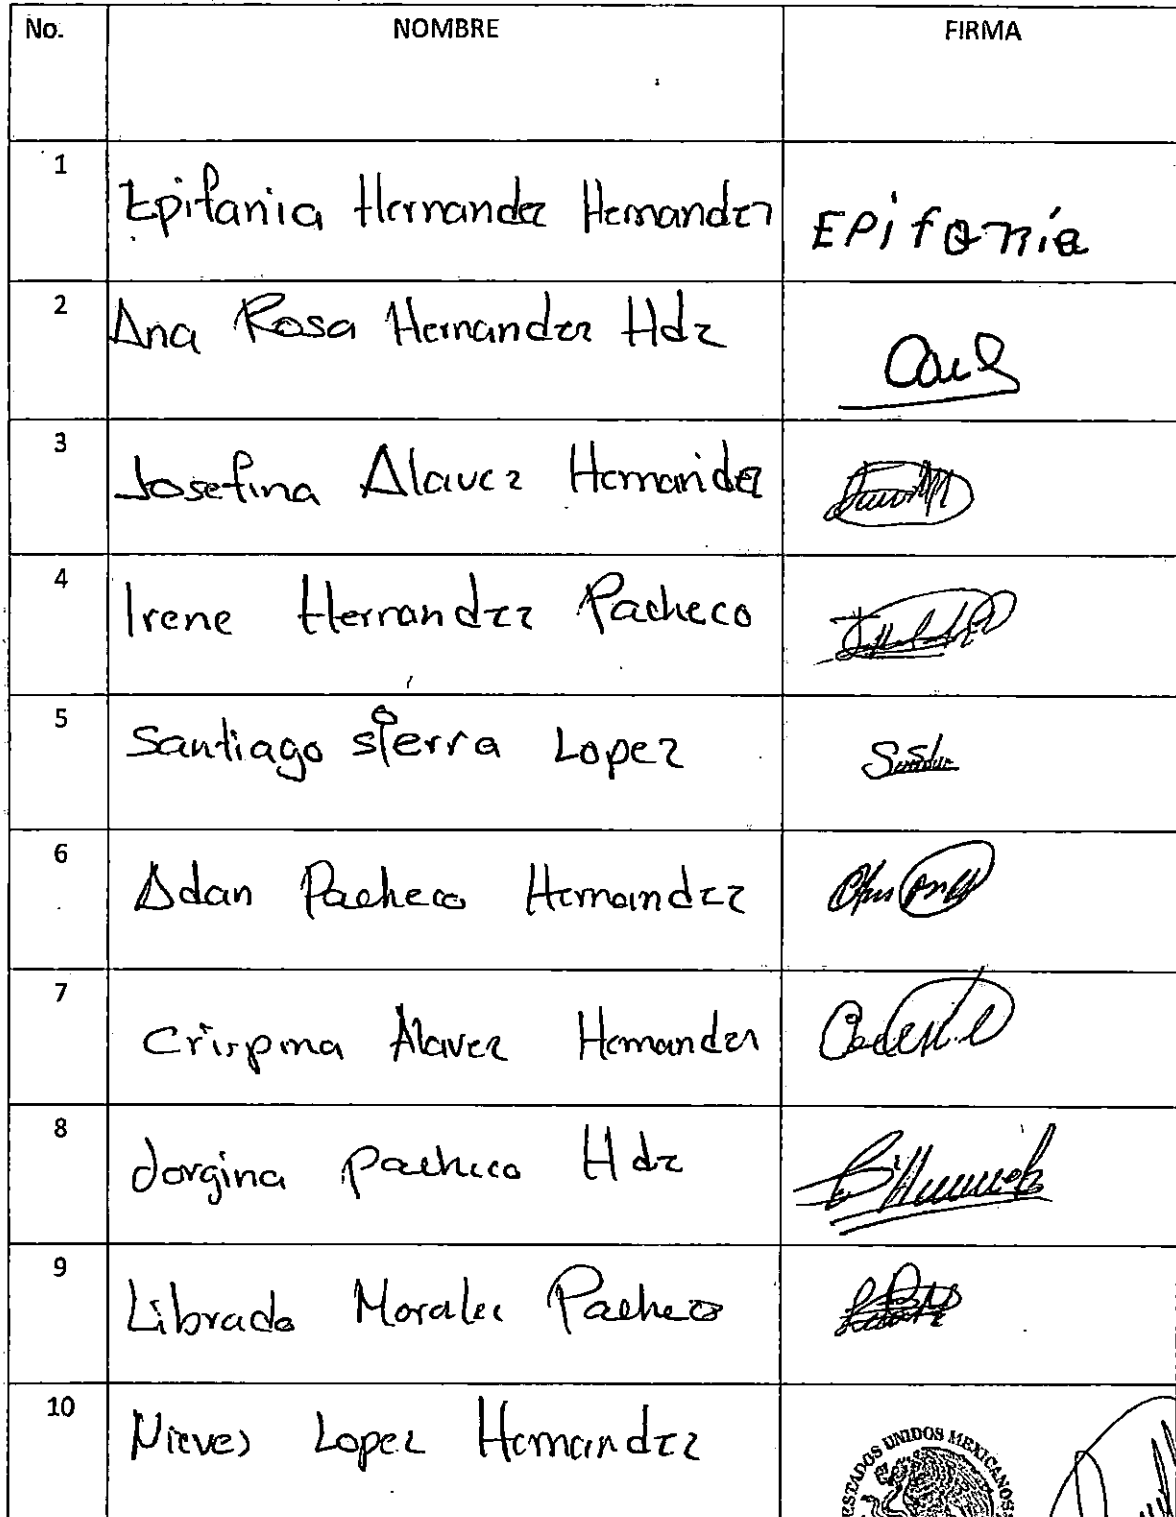 No. NOMBRE FIRMA
1 Epifania Hernandez Hernandez EPifania
2 Ana Rosa Hernandez Hdz
3 Josefina Alavez Hernandez
4 Irene Hernandez Pacheco
5 Santiago sierra Lopez
6 Adan Pacheco Hernandez
7 Crispina Alavez Hernandez
8 Jorgina Pacheco Hdz
9 Librado Morales Pacheco
10 Nieves Lopez Hernandez
ESTADOS UNIDOS MEXICANOS